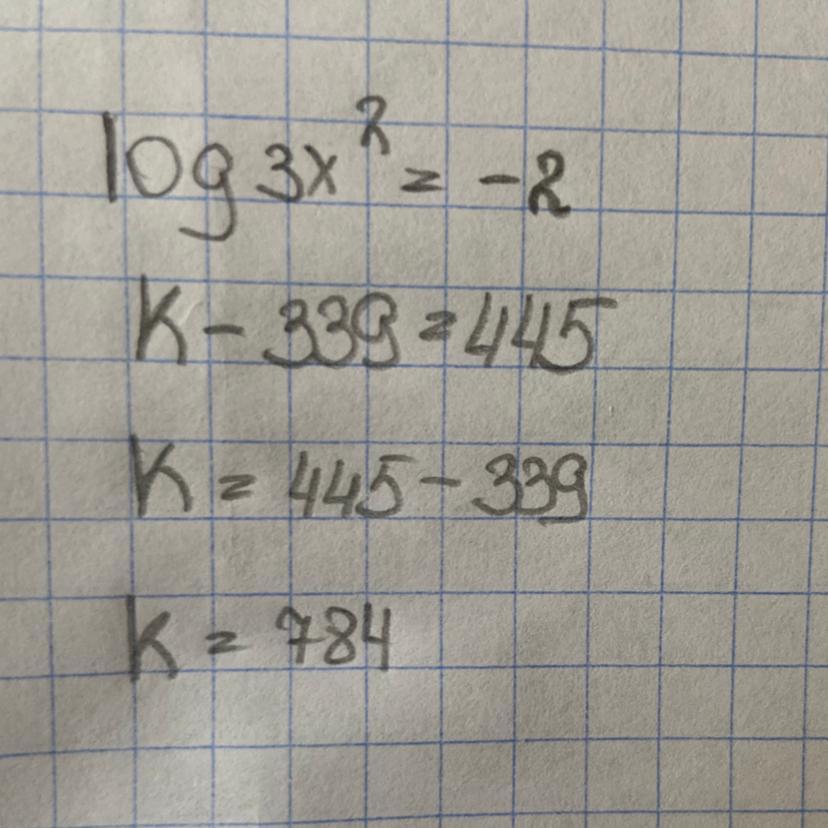 log 3x² = -2
K - 339 = 445
K = 445 - 339
K = 784